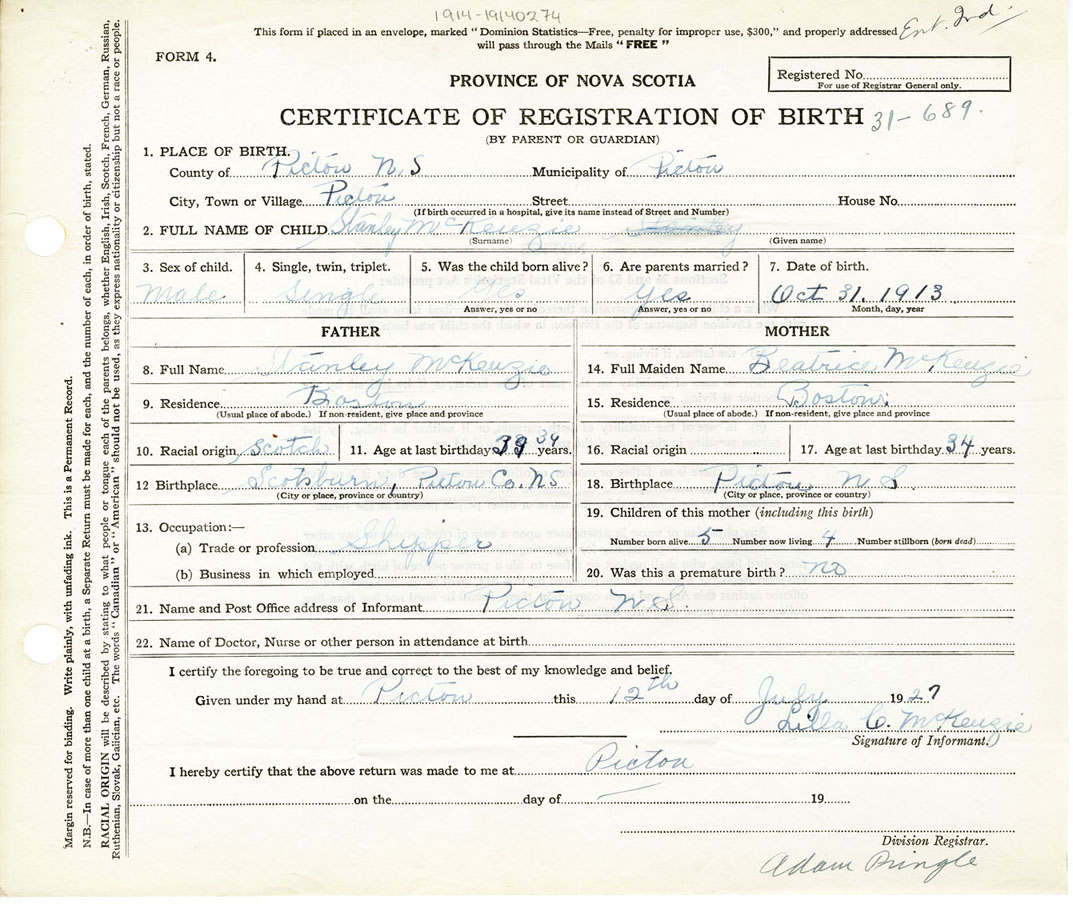 1914-19140274
This form if placed in an envelope, marked "Dominion Statistics—Free, penalty for improper use, $300," and properly addressed
will pass through the Mails "FREE"
Ent. 2nd.
FORM 4.
PROVINCE OF NOVA SCOTIA
Registered No.
For use of Registrar General only.
CERTIFICATE OF REGISTRATION OF BIRTH 31-689.
(BY PARENT OR GUARDIAN)
1. PLACE OF BIRTH.
County of Pictou N.S Municipality of Pictou
City, Town or Village Pictou Street House No.
(If birth occurred in a hospital, give its name instead of Street and Number)
2. FULL NAME OF CHILD Stanley McKenzie Stanley
(Surname) (Given name)
3. Sex of child. 4. Single, twin, triplet. 5. Was the child born alive? 6. Are parents married? 7. Date of birth.
Male Single Yes Yes Oct 31. 1913
Answer, yes or no Answer, yes or no Month, day, year
FATHER MOTHER
8. Full Name Stanley McKenzie 14. Full Maiden Name Beatrice McKenzie
9. Residence Boston 15. Residence Boston
(Usual place of abode.) If non-resident, give place and province (Usual place of abode.) If non-resident, give place and province
10. Racial origin Scotch 11. Age at last birthday 39 34 years. 16. Racial origin 17. Age at last birthday 34 years.
12 Birthplace Scotsburn, Pictou Co. NS 18. Birthplace Pictou N.S.
(City or place, province or country) (City or place, province or country)
19. Children of this mother (including this birth)
13. Occupation:—
(a) Trade or profession Shipper Number born alive 5 Number now living 4 Number stillborn (born dead)
(b) Business in which employed 20. Was this a premature birth? no
21. Name and Post Office address of Informant Pictou N.S.
22. Name of Doctor, Nurse or other person in attendance at birth
I certify the foregoing to be true and correct to the best of my knowledge and belief.
Given under my hand at Pictou this 12th day of July 1927
Lilla C. McKenzie
Signature of Informant.)
I hereby certify that the above return was made to me at Pictou
on the day of 19
Division Registrar.
Adam Pringle
Margin reserved for binding. Write plainly, with unfading ink. This is a Permanent Record.
N.B.—In case of more than one child at a birth, a Separate Return must be made for each, and the number of each, in order of birth, stated.
RACIAL ORIGIN will be described by stating to what people or tongue each of the parents belongs, whether English, Irish, Scotch, French, German, Russian,
Ruthenian, Slovak, Galician, etc. The words "Canadian" or "American" should not be used, as they express nationality or citizenship but not a race or people.